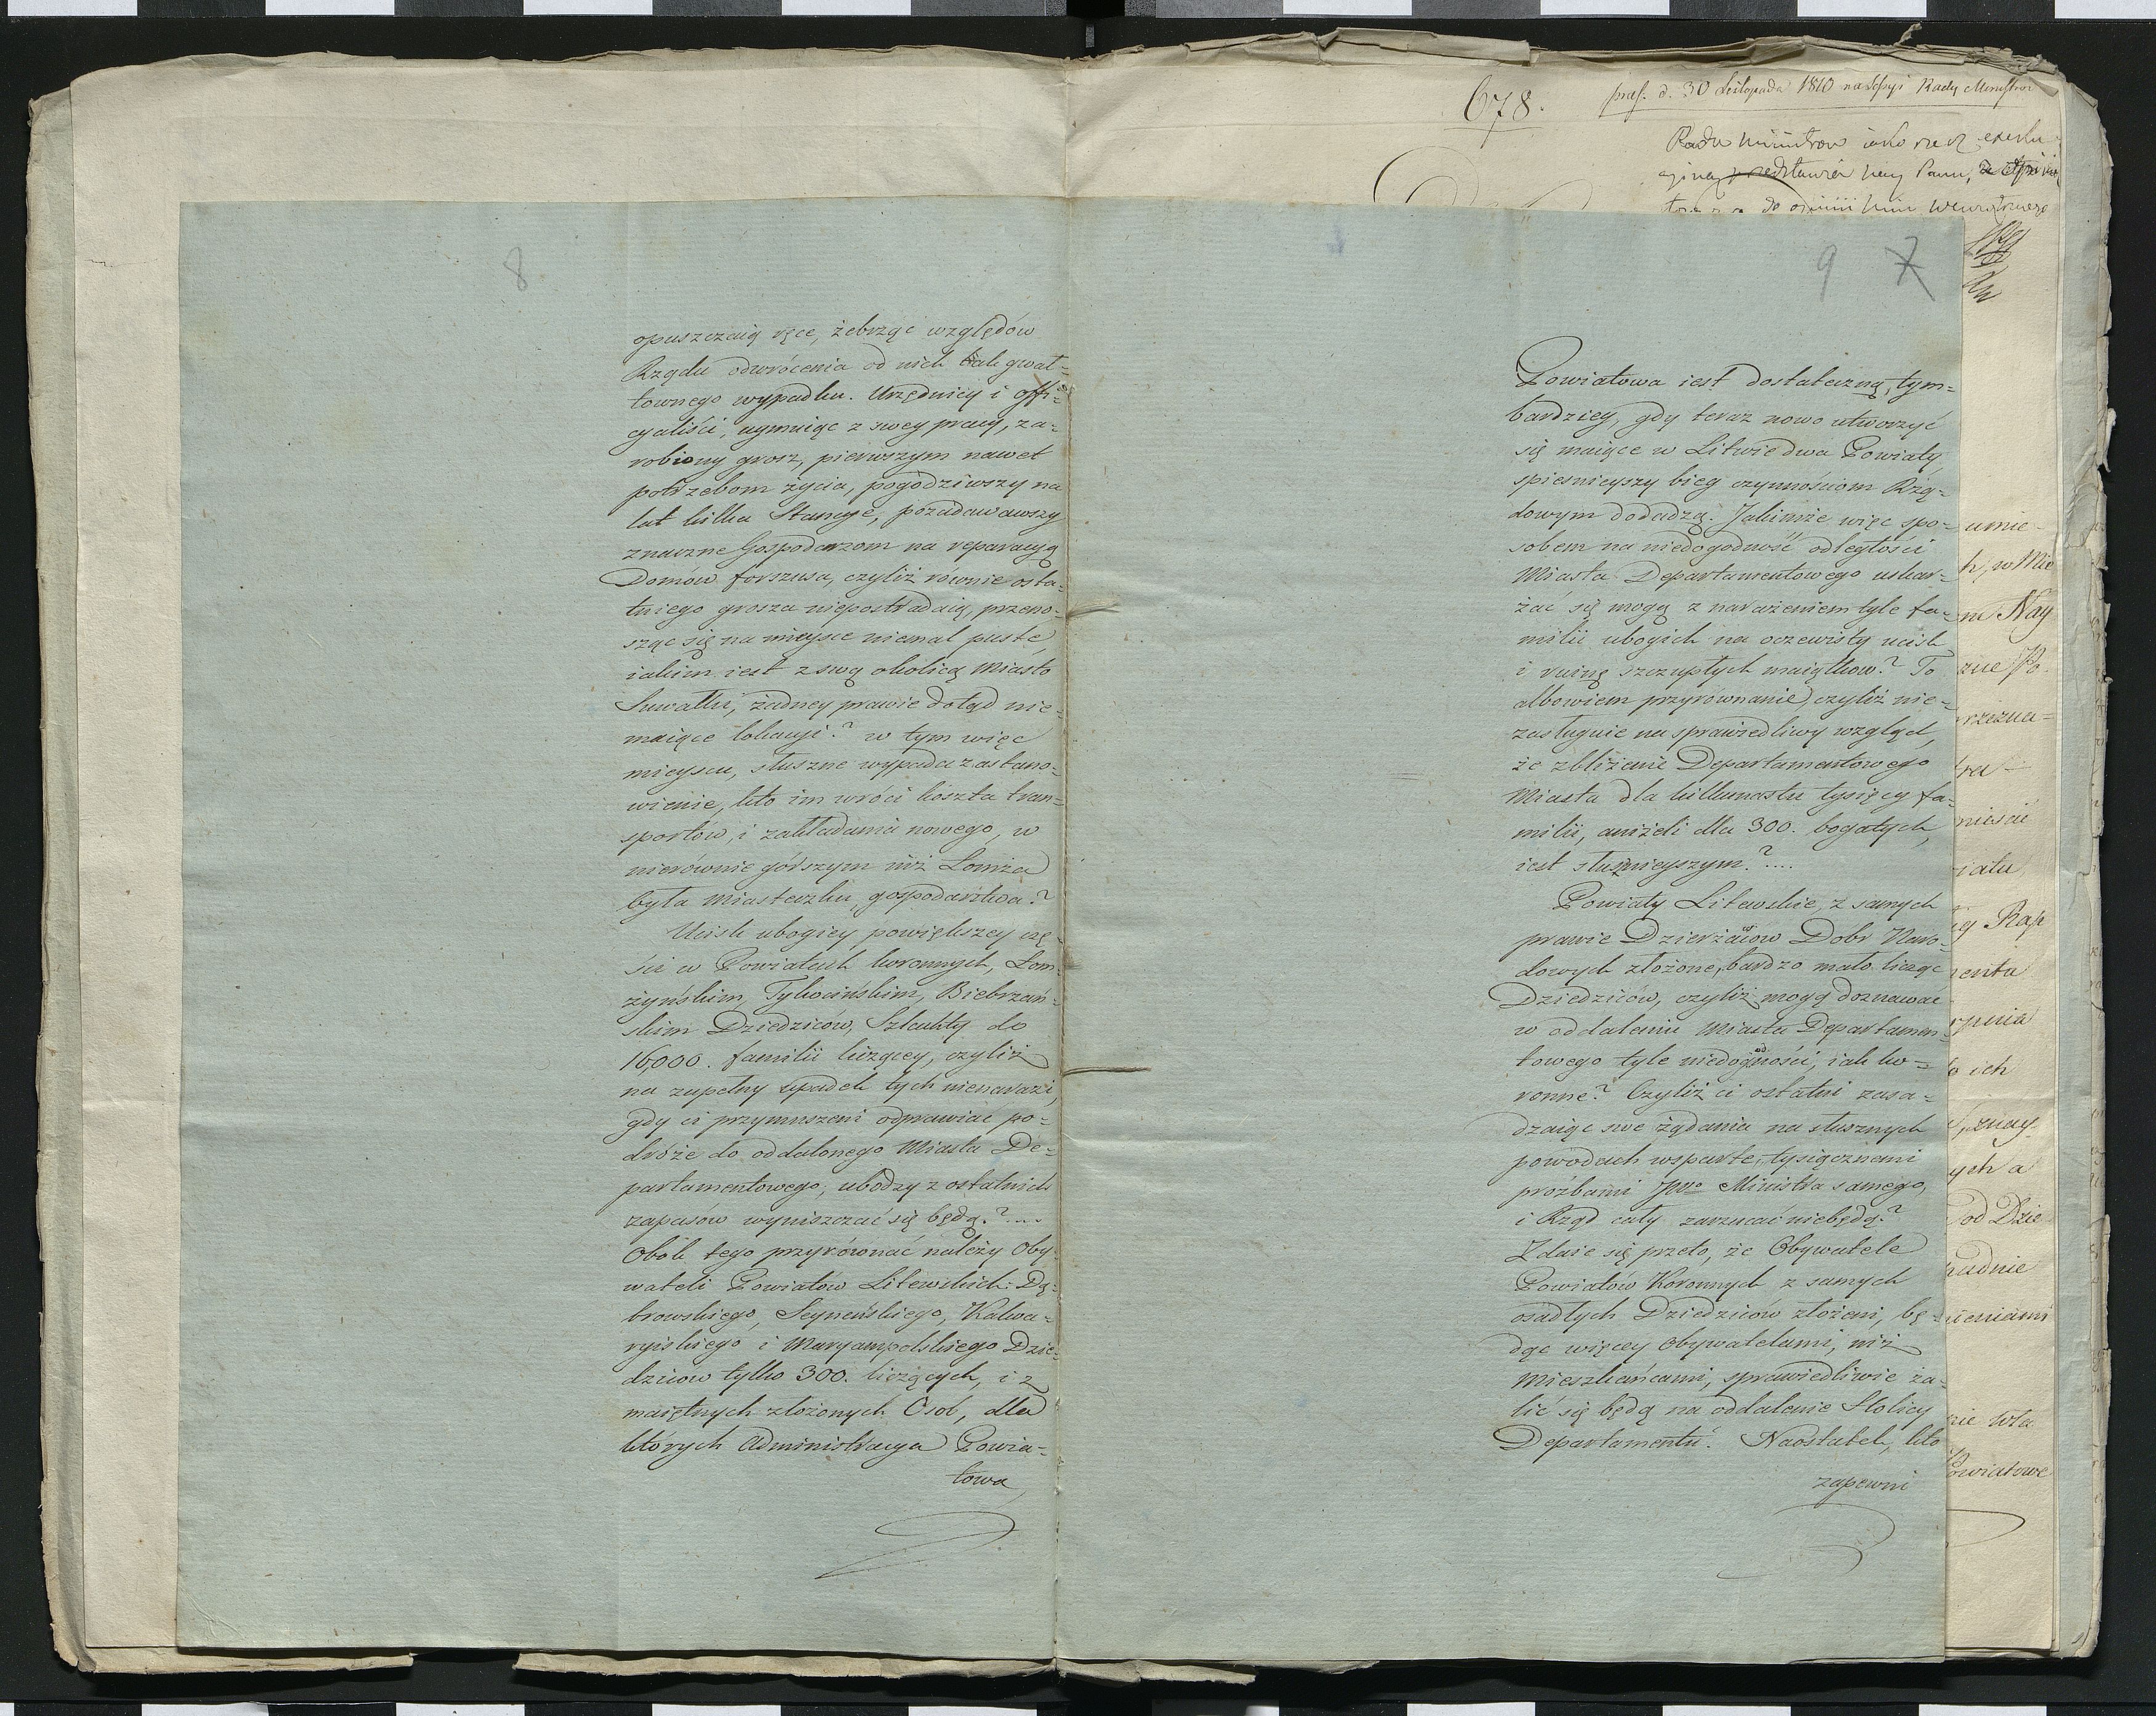 8
opuszczaią ręce, żebrząc względów
Rządu odwrócenia od nich tak gwał=
townego wypadku. Urzędnicy i offi=
cyaliści, uymuiąc z swey pracy, za=
robiony grosz, pierwszym nawet
potrzebom życia, pogodziwszy na
lat kilka Stancye, pozadawawszy
znaczne Gospodarzom na reparacyą
Domów forszusa, czyliż równie osta=
tniego grosza niepostradaią, przeno=
sząc się na mieysce niemal puste,
iakim iest z swą okolicą Miasto
Suwałki, żadney prawie dotąd nie=
maiące lokacyi? w tym więc
mieyscu, słuszne wypada zastano=
wienie, kto im wróci koszta tran=
sportów, i zakładania nowego, w
nierównie górszym niż Łomża
była miasteczku, gospodarstwa?
Ucisk ubogiey powiększey czę=
ści w Powiatach koronnych, Łom=
żyńskim, Tykocińskim, Biebrzań=
skim Dziedziców, Szlachty do
16,000. familii liczącey, czyliż
na zupełny upadek tych nienarazi,
gdy ci przymuszeni odprawiac po=
dróże do oddalonego Miasta De=
partamentowego, ubodzy z ostatnich
zapasów wyniszczać się będą?....
Obok tego przyrównać należy Oby=
wateli Powiatów Litewskich: Dą=
browskiego, Seyneńskiego, Kalwa=
ryiskiego i Maryampolskiego Dzie=
dziców tylko 300. liczących, i z
maiętnych złożonych Osób, dla
których Administracya Powia=
towa
678.
pres. d. 30 Listopada 1810 na Sessyi Rady Ministrow
Rada Ministrow iako rzecz
do opinii Min
9 7
Powiatowa iest dostateczną, tym=
bardziey, gdy teraz nowo utworzyć
się maiące w Litwie dwa Powiaty,
spiesznieyszy bieg czynnościom Rzą=
dowym dodadzą. Jakimże więc spo=
sobem na niedogodność odległości
Miasta Departamentowego uskar=
żać się mogą z narażeniem tyle fa=
milii ubogich na oczewisty ucisk
i ruinę szczupłych maiątkow? To
albowiem przyrównanie, czyliż nie=
zasługuie na sprawiedliwy wzgląd,
że zbliżenie Departamentowego
Miasta dla kilkunastu tysięcy fa=
milii, aniżeli dla 300. bogatych,
iest słusznieyszym?....
Powiaty Litewskie, z samych
prawie Dzierżawców Dobr Naro=
dowych złożone, bardzo mało licząc
Dziedziców, czyliż mogą doznawać
w oddaleniu Miasta Departamen=
towego tyle niedogodności, iak ko=
ronne? Czyliż ci ostatni zasa=
dzaiąc swe żądania na słusznych
powodach wsparte, tysiącznemi
proźbami JWo Ministra samego,
i Rząd cały zarzucać niebędą?
Zdaie się przeto, że Obywatele
Powiatów Koronnych z samych
osiadłych Dziedziców złożeni, bę=
dąc więcey Obywatelami, niż
Mieszkańcami, sprawiedliwie ża=
lić się będą na oddalenie Stolicy
Departamentu. Naostatek, kto
zapewni
umie
Nay
rzezna=
tra
niesić
iatu
Rap
menta
rpnia
ich
znay
ych a
od Dzie
udnie
ieniami
nie Wła
Powiatowe